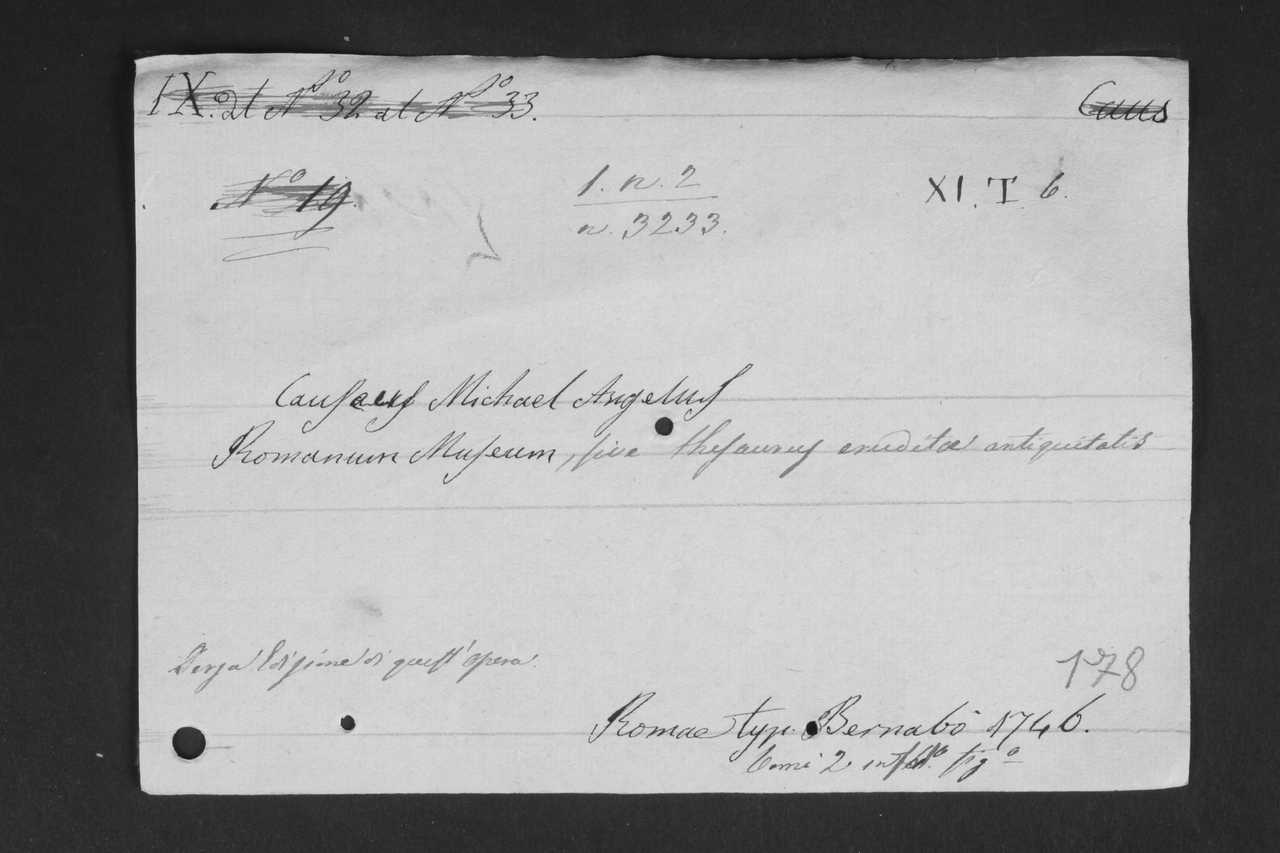 IX. at Nº 32 at Nº 33.
Caus
Nº 19.
1. n. 2
XI. T. 6.
n. 3233.
Causaeus Michael Angelus
Romanum Museum, sive thesaurus eruditae antiquitatis
Terza Edizione di quest'opera.
178
Romae typ. Bernabò 1746.
tomi 2 in fol.º fig.º